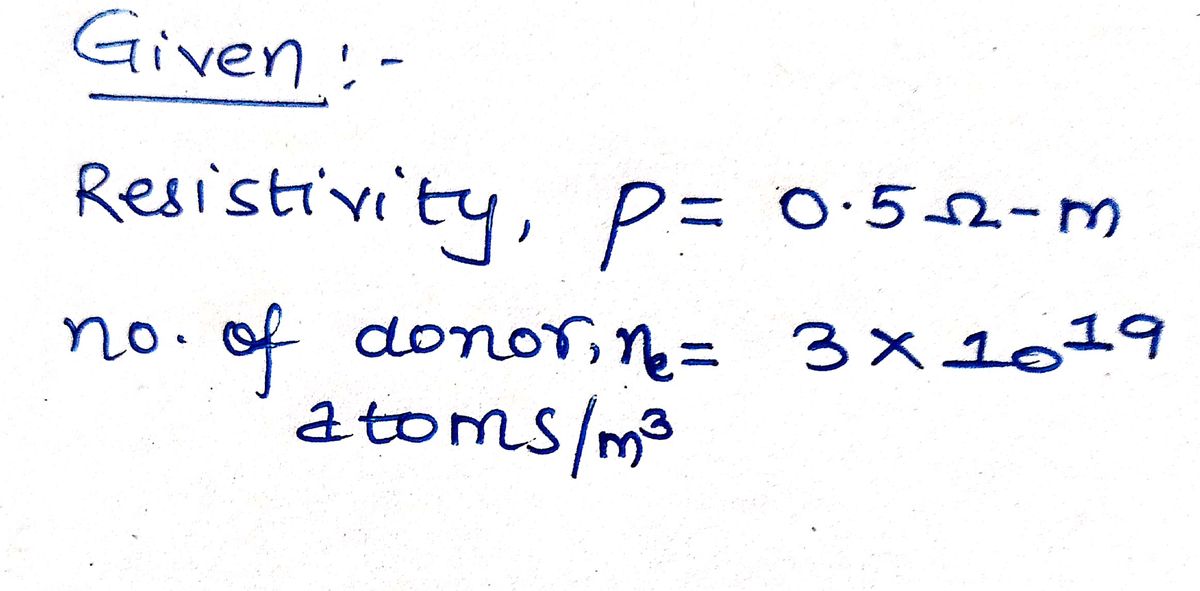 Given :-
Resistivity, ρ = 0.5 Ω-m
no. of donor, nₑ = 3 × 10¹⁹
atoms/m³